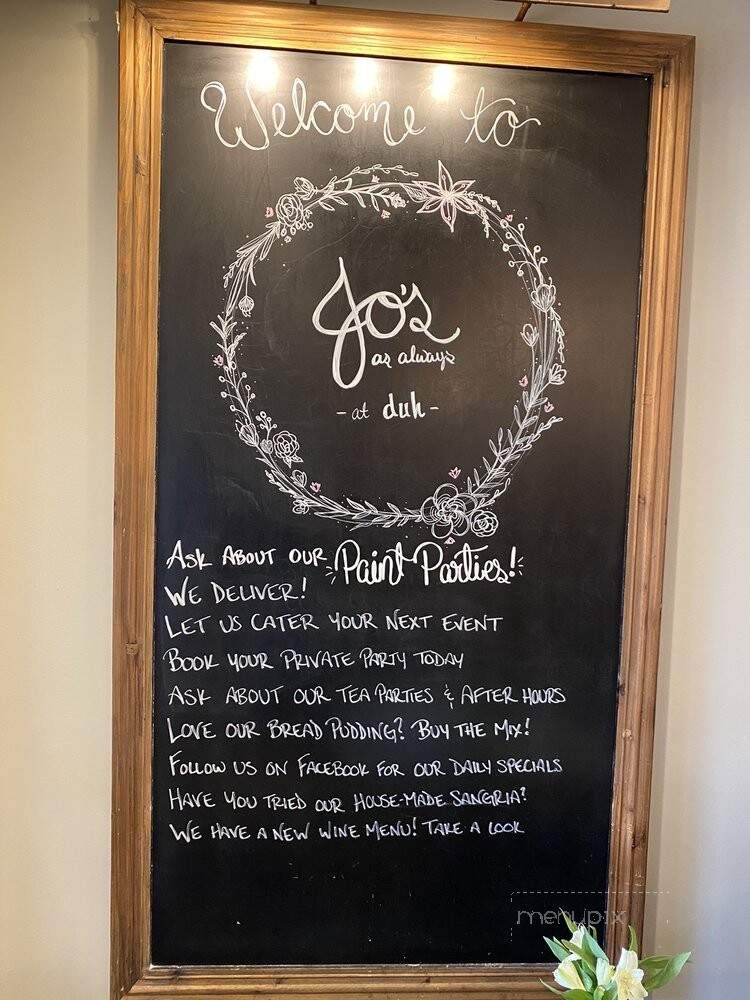 Welcome to
Jo's
as always
- at duh -
ASK ABOUT OUR Paint Parties!
WE DELIVER!
LET US CATER YOUR NEXT EVENT
BOOK YOUR PRIVATE PARTY TODAY
ASK ABOUT OUR TEA PARTIES & AFTER HOURS
LOVE OUR BREAD PUDDING? BUY THE MIX!
FOLLOW US ON FACEBOOK FOR OUR DAILY SPECIALS
HAVE YOU TRIED OUR HOUSE-MADE SANGRIA?
WE HAVE A NEW WINE MENU! TAKE A LOOK
menupix